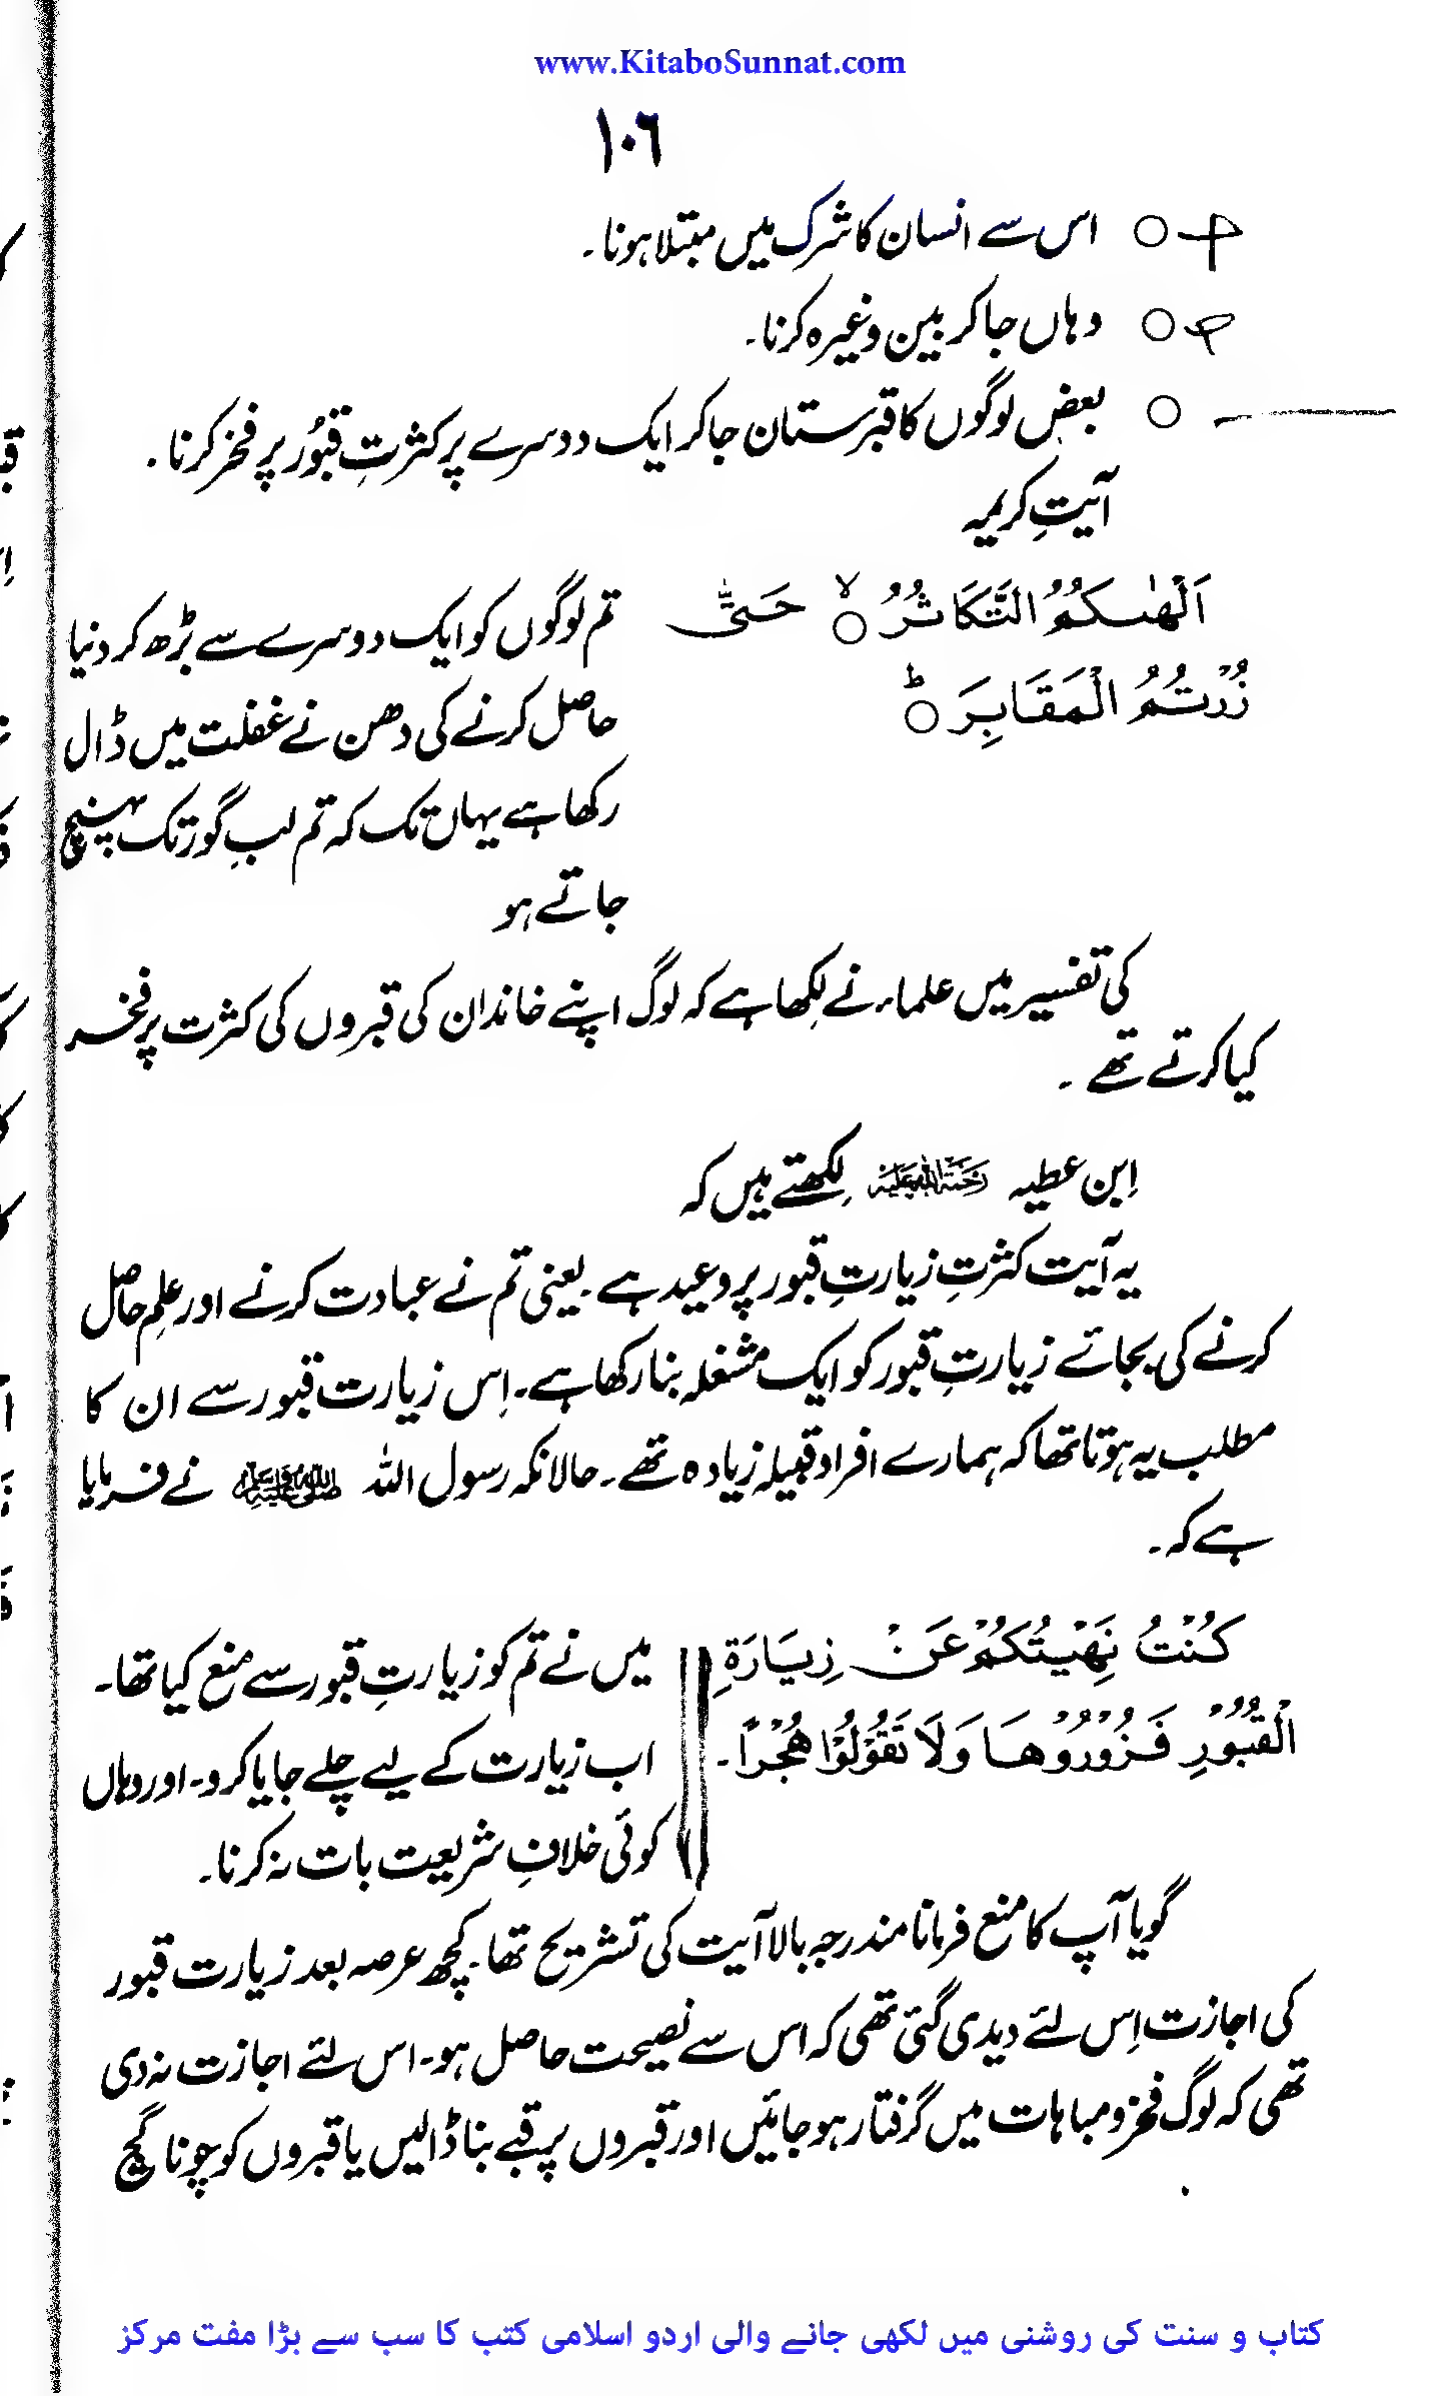 www.KitaboSunnat.com
۱۰۶
○ اس سے انسان کا شرک میں مبتلا ہونا۔
○ وہاں جا کر بین وغیرہ کرنا۔
○ بعض لوگوں کا قبرستان جا کر ایک دوسرے پر کثرتِ قبُور پر فخر کرنا۔
آیتِ کریمہ
اَلْهٰىكُمُ التَّكَاثُرُ ○ۙ حَتّٰى
زُرْتُمُ الْمَقَابِرَ ○ؕ
تم لوگوں کو ایک دوسرے سے بڑھ کر دنیا
حاصل کرنے کی دھن نے غفلت میں ڈال
رکھا ہے یہاں تک کہ تم لبِ گور تک پہنچ
جاتے ہو
کی تفسیر میں علماء نے لکھا ہے کہ لوگ اپنے خاندان کی قبروں کی کثرت پر فخر
کیا کرتے تھے۔
اِبن عطیہ رَحْمَةُ اللّٰهِ عَلَيْه لکھتے ہیں کہ
یہ آیت کثرتِ زیارتِ قبور پر وعید ہے۔ یعنی تم نے عبادت کرنے اور علم حاصل
کرنے کی بجائے زیارتِ قبور کو ایک مشغلہ بنا رکھا ہے۔ اِس زیارت قبور سے ان کا
مطلب یہ ہوتا تھا کہ ہمارے افراد قبیلہ زیادہ تھے۔ حالانکہ رسول اللہ ﷺ نے فرمایا
ہے کہ۔
كُنْتُ نَهَيْتُكُمْ عَنْ زِيَارَةِ
الْقُبُوْرِ فَزُوْرُوْهَا وَلَا تَقُوْلُوْا هُجْرًا۔
میں نے تم کو زیارتِ قبور سے منع کیا تھا۔
اب زیارت کے لیے چلے جایا کرو۔ اور وہاں
کوئی خلافِ شریعت بات نہ کرنا۔
گویا آپ کا منع فرمانا مندرجہ بالا آیت کی تشریح تھا۔ کچھ عرصہ بعد زیارت قبور
کی اجازت اِس لئے دیدی گئی تھی کہ اس سے نصیحت حاصل ہو۔ اس لئے اجازت نہ دی
تھی کہ لوگ فخر و مباہات میں گرفتار ہو جائیں اور قبروں پر قبے بنا ڈالیں یا قبروں کو چونا گچ
کتاب و سنت کی روشنی میں لکھی جانے والی اردو اسلامی کتب کا سب سے بڑا مفت مرکز